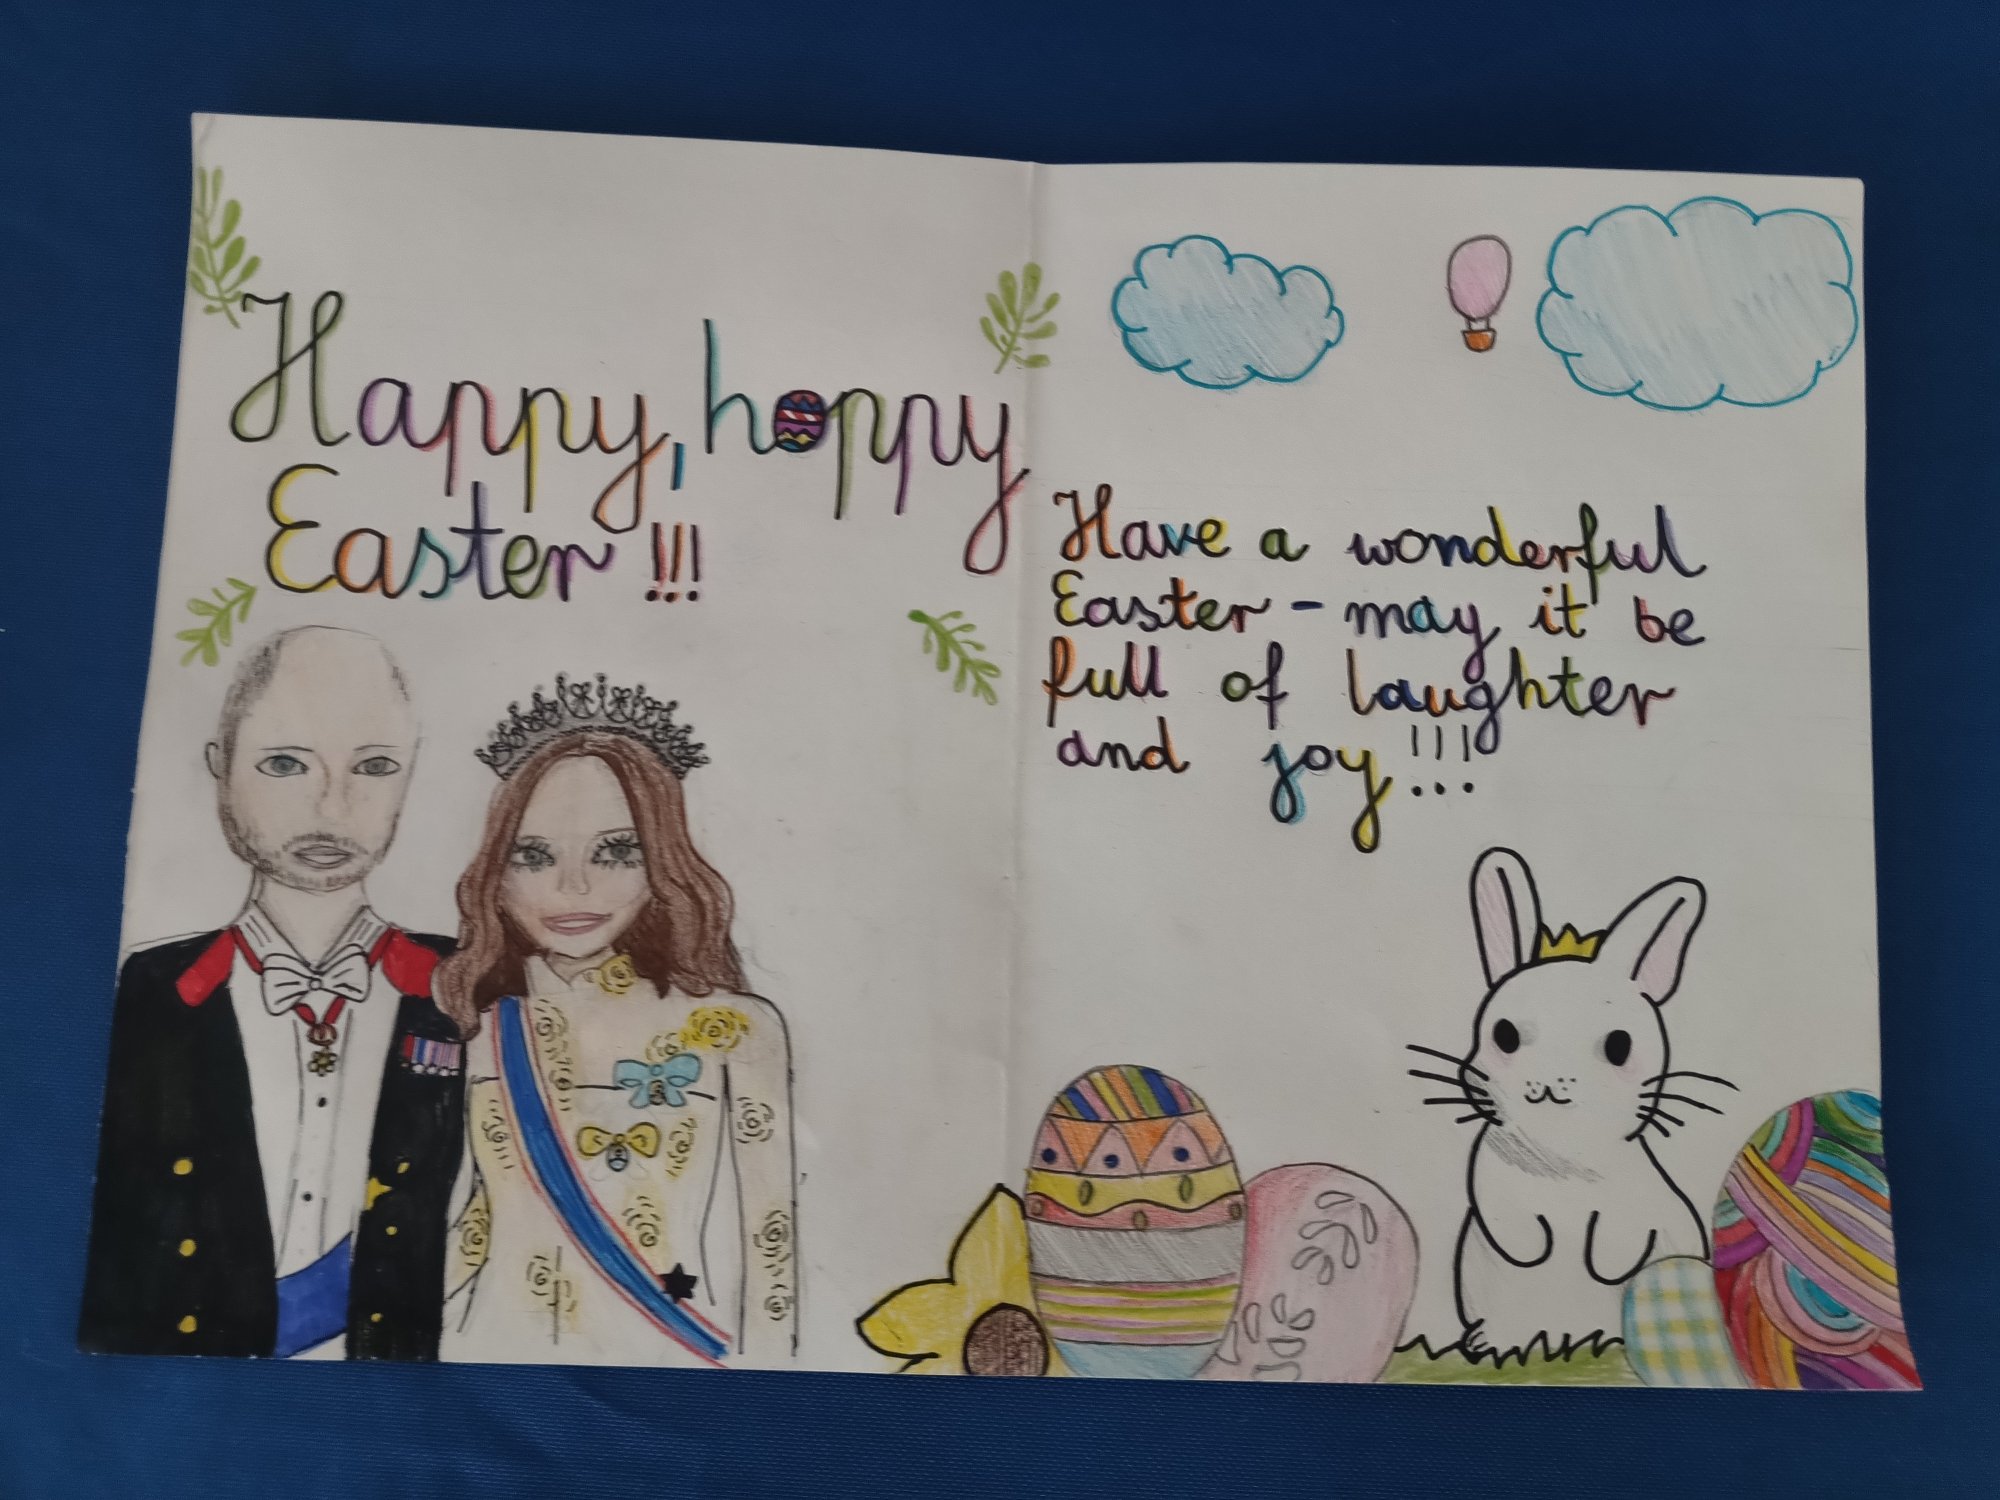 Happy, hoppy
Easter!!!
Have a wonderful
Easter - may it be
full of laughter
and joy!!!